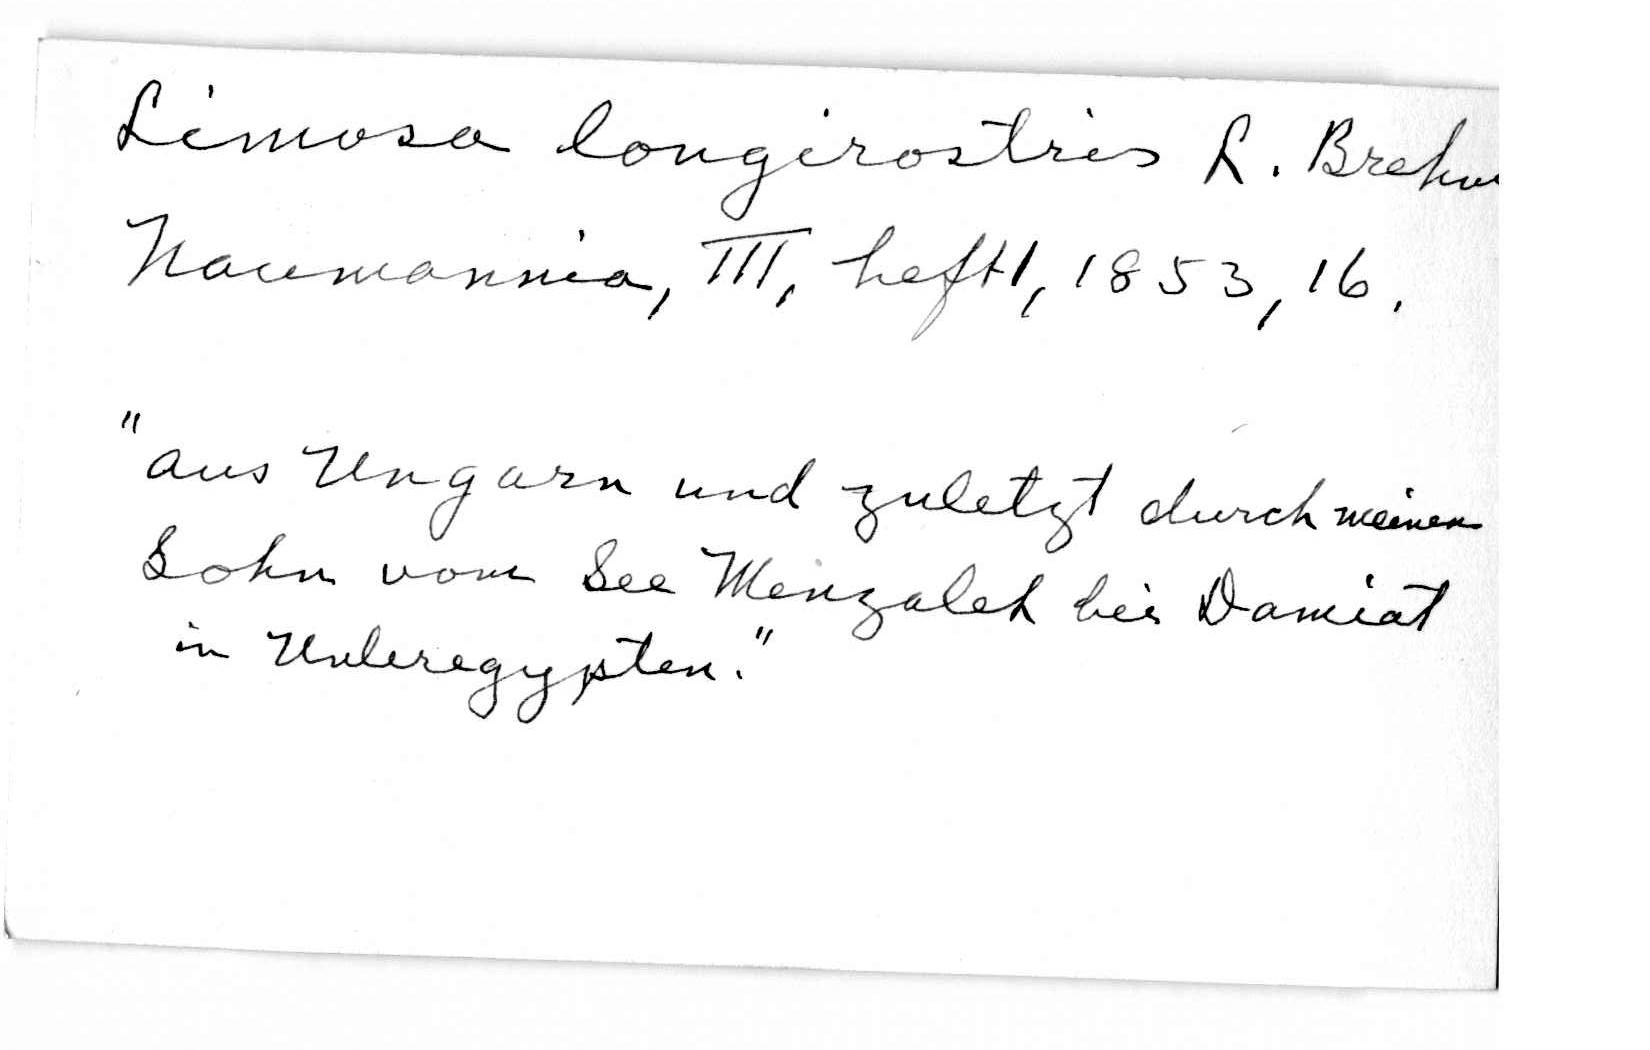 Limosa longirostris L. Brehm
Naumannia, III, heft 1, 1853, 16.
"aus Ungarn und zuletzt durch meinen
Sohn vom See Menzaleh bei Damiat
in Unteregypten."